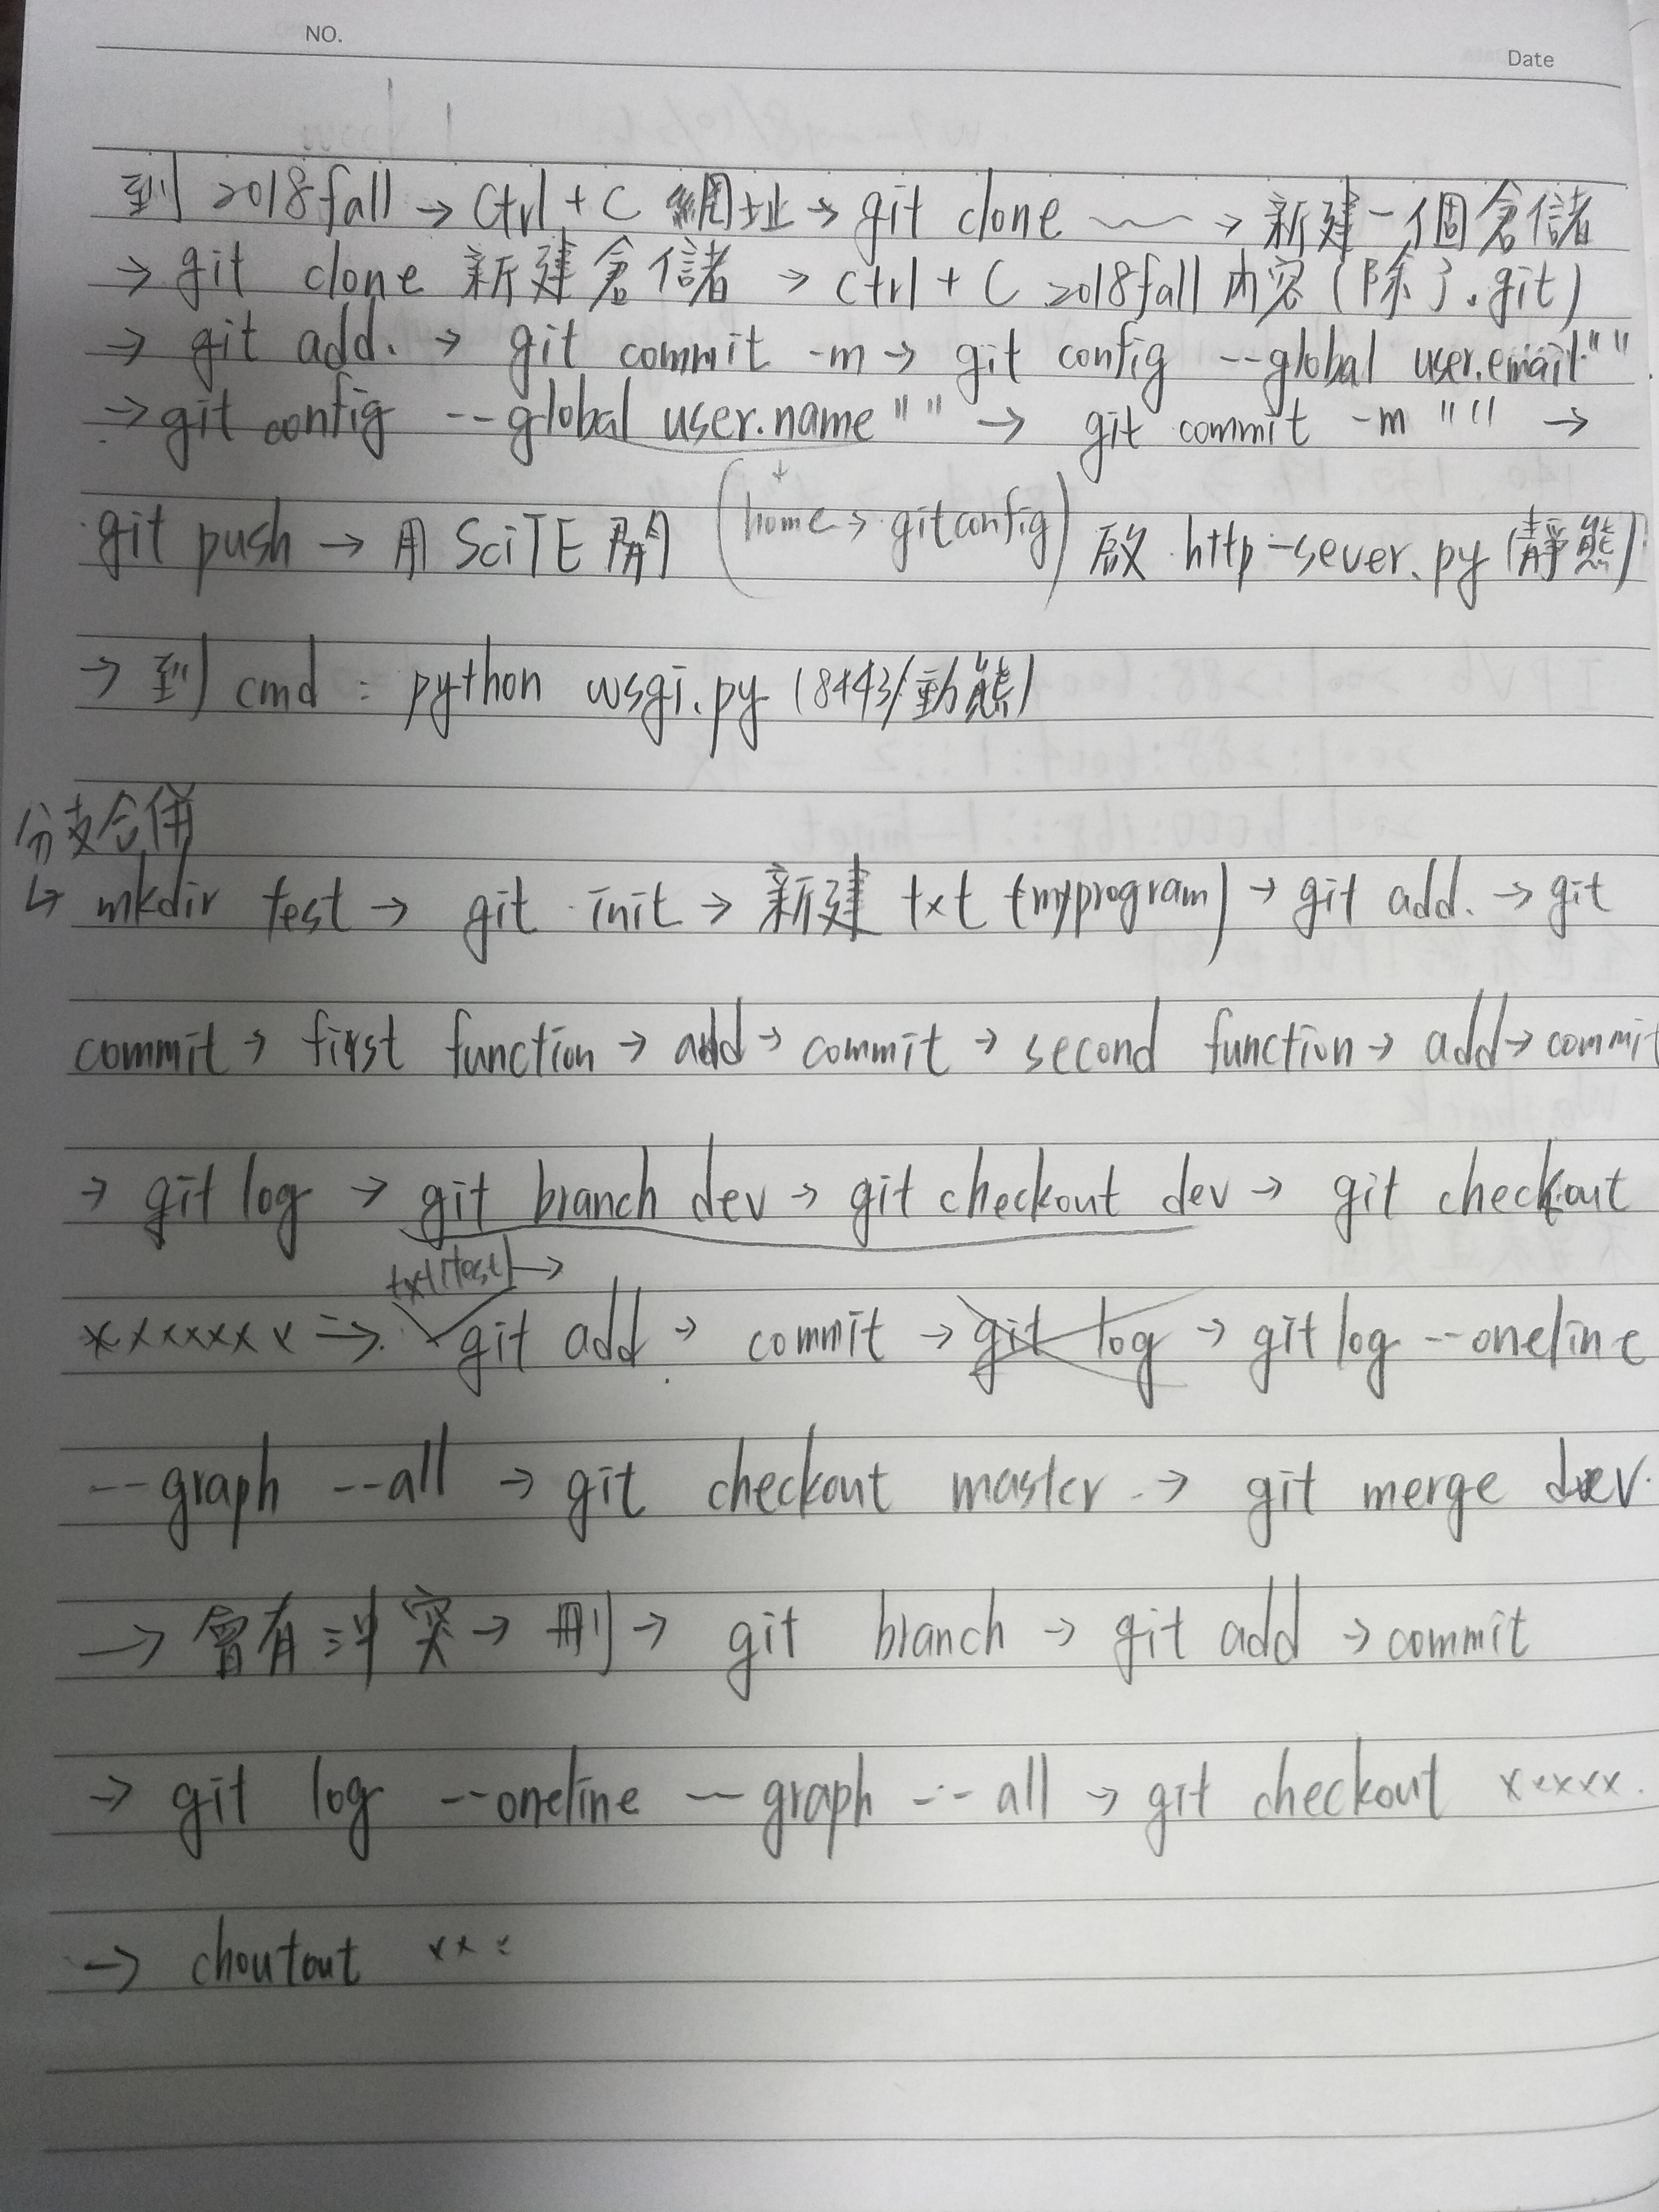 NO.
Date
到 2018fall → Ctrl + C 網址 → git clone ~~ → 新建一個倉儲
→ git clone 新建倉儲 → ctrl + C 2018fall 內容 (除了.git)
→ git add. → git commit -m → git config --global user.email" "
→ git config --global user.name " " → git commit -m " " →
(home → gitconfig)
git push → 用 SciTE 開 啟 http-sever.py (靜態)
→ 到 cmd : python wsgi.py (8443/動態)
分支合併
↳ mkdir test → git init → 新建 txt (myprogram) → git add. → git
commit → first function → add → commit → second function → add → commit
→ git log → git branch dev → git checkout dev → git checkout
txt(test) →
xxxxxxx → git add. → commit → git log → git log --oneline
--graph --all → git checkout master → git merge dev.
→ 會有沖突 → 刪 → git branch → git add → commit
→ git log --oneline --graph --all → git checkout xxxxx.
→ choutout xxx